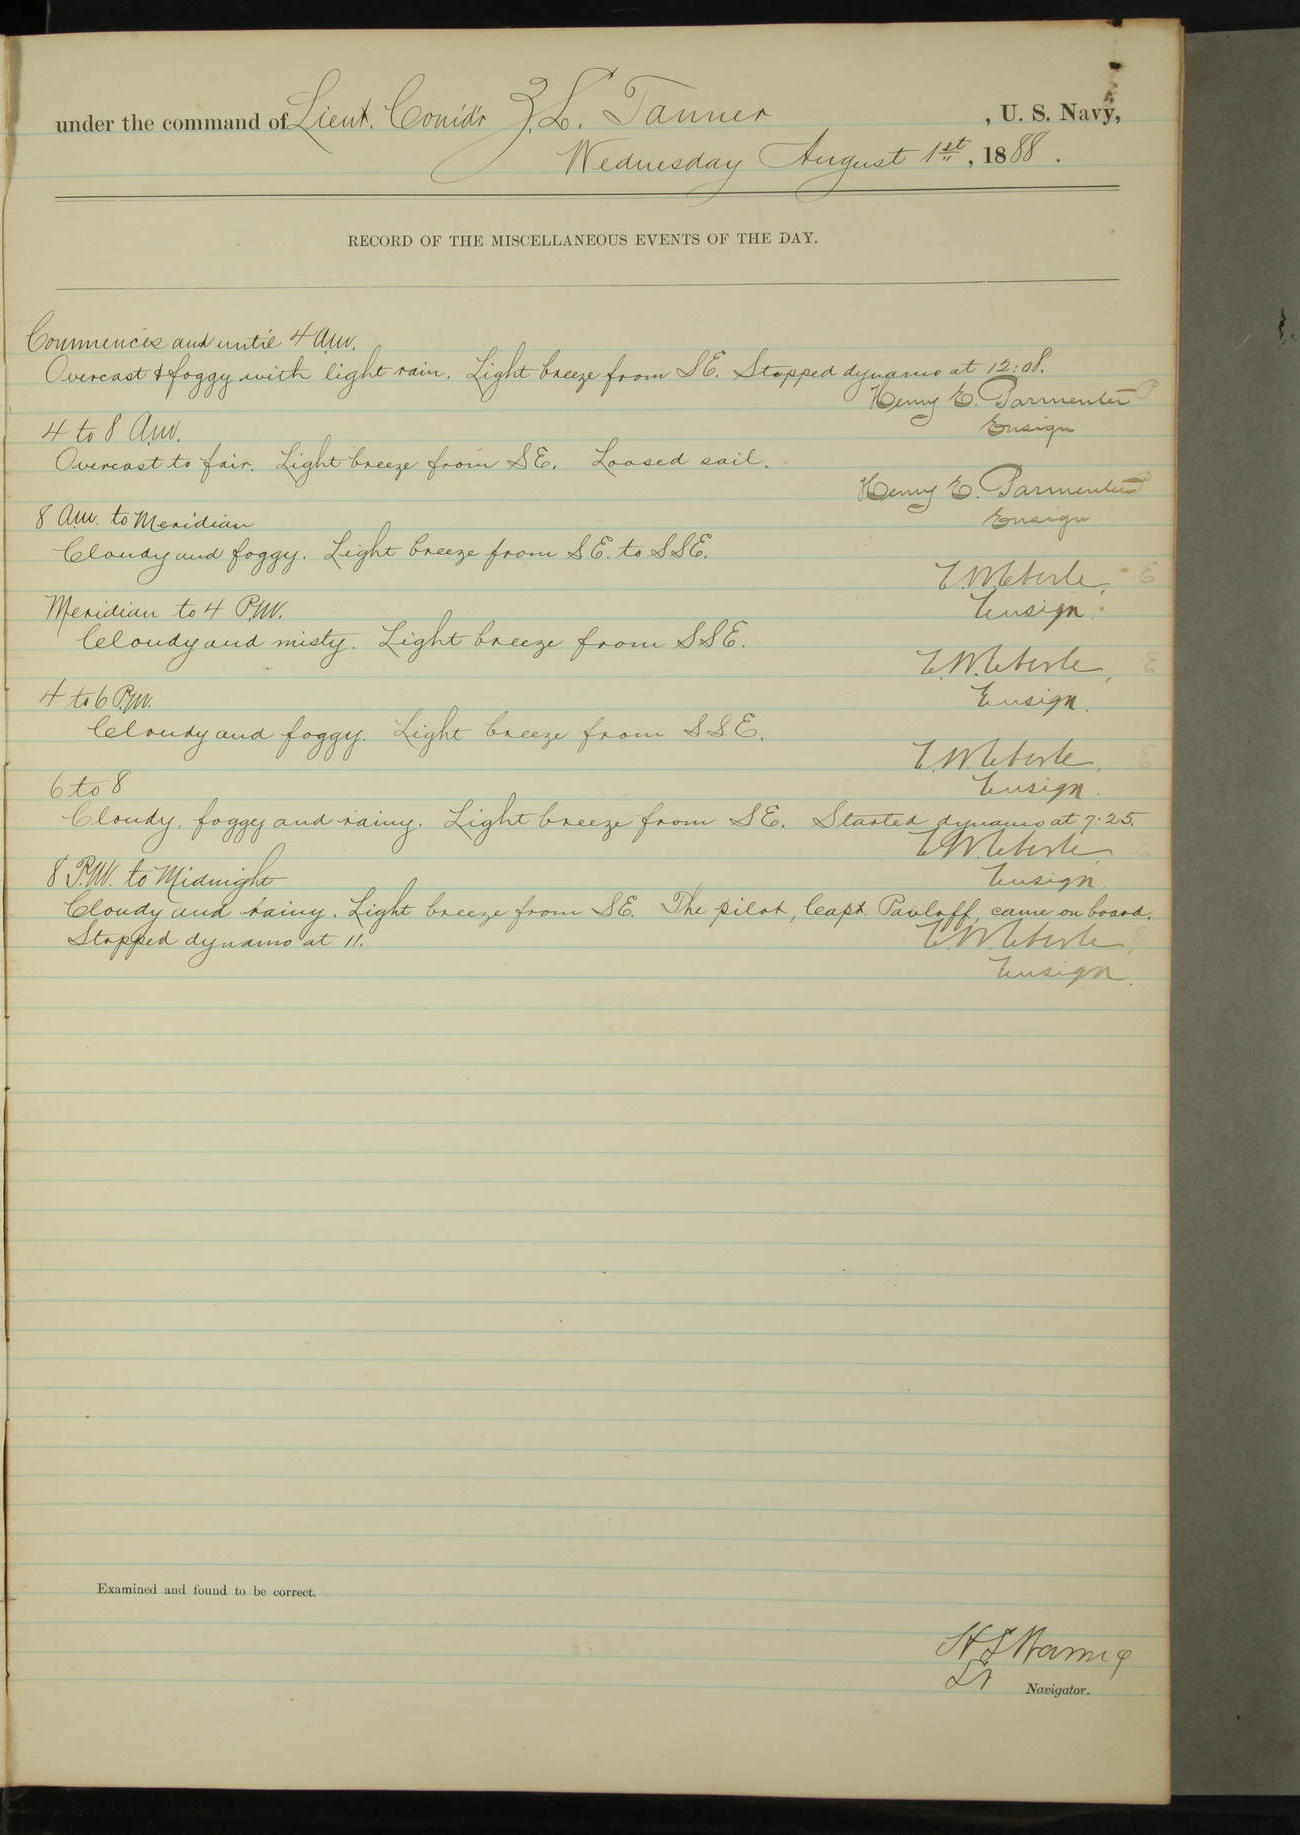 under the command of Lieut. Comd'r Z. L. Tanner, U. S. Navy,
Wednesday August 1st, 1888.
RECORD OF THE MISCELLANEOUS EVENTS OF THE DAY.
Commences and until 4 A.M.
Overcast & foggy with light rain. Light breeze from SE. Stopped dynamo at 12:08.
Henry E. Parmenter
Ensign
4 to 8 A.M.
Overcast to fair. Light breeze from SE. Loosed sail.
Henry E. Parmenter
Ensign
8 A.M. to Meridian
Cloudy and foggy. Light breeze from SE. to SSE.
E. W. Eberle,
Ensign.
Meridian to 4 P.M.
Cloudy and misty. Light breeze from SSE.
E. W. Eberle,
Ensign.
4 to 6 P.M.
Cloudy and foggy. Light breeze from SSE.
E. W. Eberle,
Ensign.
6 to 8
Cloudy, foggy and rainy. Light breeze from SE. Started dynamo at 7:25.
E. W. Eberle,
Ensign.
8 P.M. to Midnight
Cloudy and rainy. Light breeze from SE. The pilot, Capt. Pavloff, came on board.
Stopped dynamo at 11.
E. W. Eberle,
Ensign.
Examined and found to be correct.
Lt
Navigator.